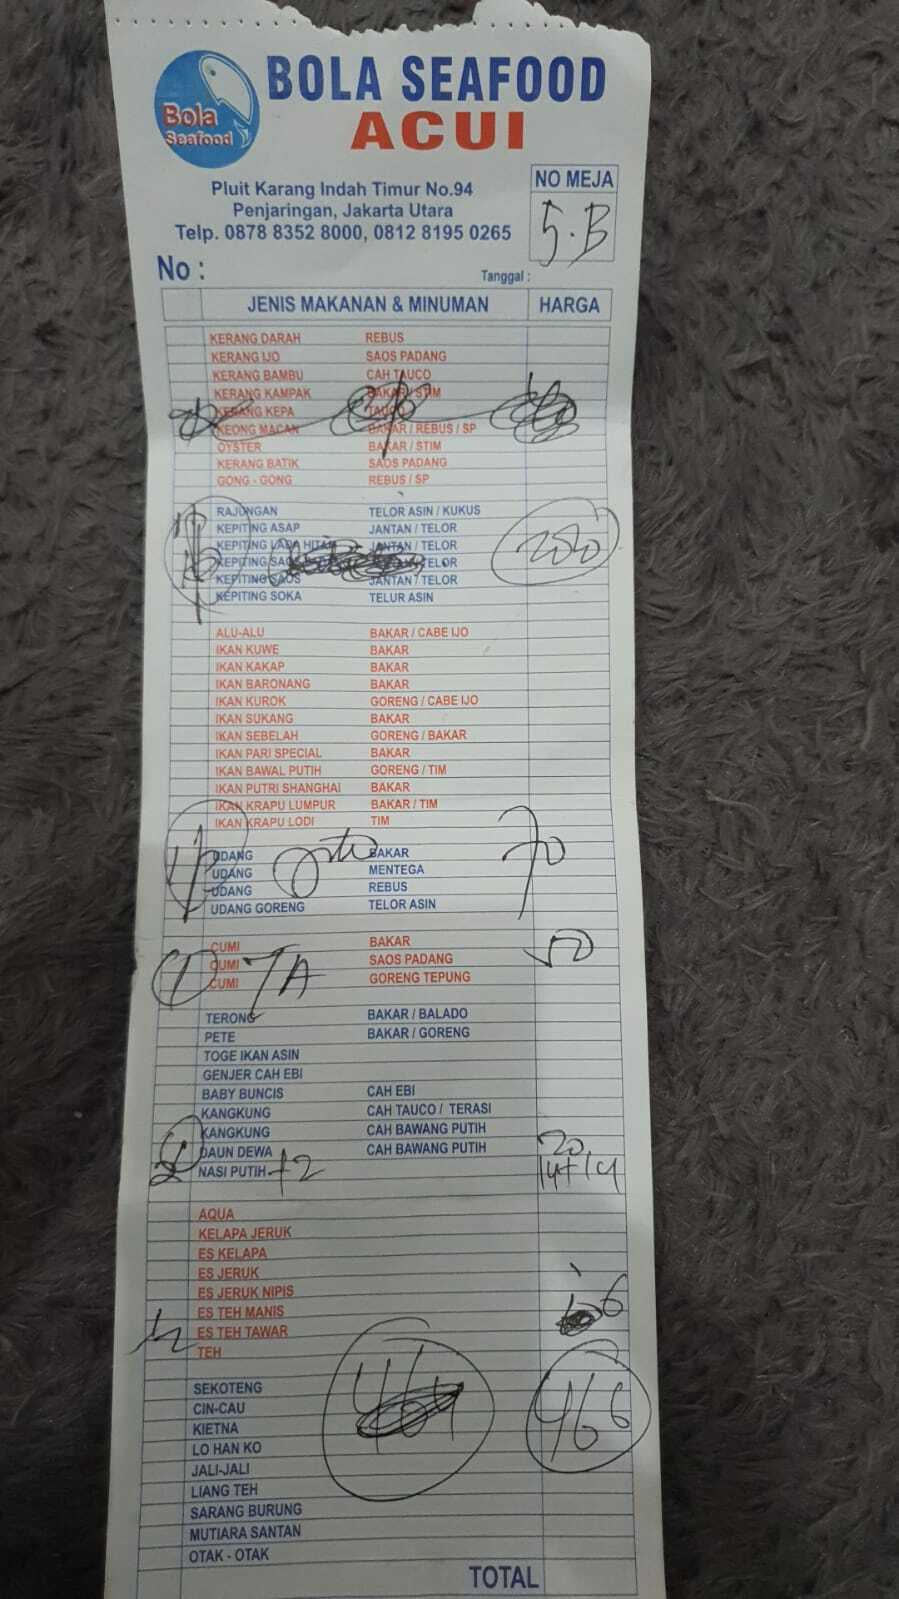 Bola
Seafood
BOLA SEAFOOD
ACUI
Pluit Karang Indah Timur No.94
Penjaringan, Jakarta Utara
Telp. 0878 8352 8000, 0812 8195 0265
NO MEJA
5.B
No :
Tanggal :
JENIS MAKANAN & MINUMAN HARGA
KERANG DARAH REBUS
KERANG IJO SAOS PADANG
KERANG BAMBU CAH TAUCO
KERANG KAMPAK BAKAR / STIM
KERANG KEPA TAUCO
KEONG MACAN BAKAR / REBUS / SP
OYSTER BAKAR / STIM
KERANG BATIK SAOS PADANG
GONG - GONG REBUS / SP
RAJUNGAN TELOR ASIN / KUKUS
KEPITING ASAP JANTAN / TELOR
KEPITING LADA HITAM JANTAN / TELOR
KEPITING TELOR
KEPITING SAOS JANTAN / TELOR
KEPITING SOKA TELUR ASIN
ALU-ALU BAKAR / CABE IJO
IKAN KUWE BAKAR
IKAN KAKAP BAKAR
IKAN BARONANG BAKAR
IKAN KUROK GORENG / CABE IJO
IKAN SUKANG BAKAR
IKAN SEBELAH GORENG / BAKAR
IKAN PARI SPECIAL BAKAR
IKAN BAWAL PUTIH GORENG / TIM
IKAN PUTRI SHANGHAI BAKAR
IKAN KRAPU LUMPUR BAKAR / TIM
IKAN KRAPU LODI TIM
UDANG BAKAR 70
UDANG MENTEGA
UDANG REBUS
UDANG GORENG TELOR ASIN
CUMI BAKAR 50
CUMI SAOS PADANG
1 CUMI TA GORENG TEPUNG
TERONG BAKAR / BALADO
PETE BAKAR / GORENG
TOGE IKAN ASIN
GENJER CAH EBI
BABY BUNCIS CAH EBI
KANGKUNG CAH TAUCO / TERASI
KANGKUNG CAH BAWANG PUTIH
DAUN DEWA CAH BAWANG PUTIH 20
2 NASI PUTIH +2 14+14
AQUA
KELAPA JERUK
ES KELAPA
ES JERUK
ES JERUK NIPIS
ES TEH MANIS 6
ES TEH TAWAR
TEH
SEKOTENG
CIN-CAU 466
KIETNA
LO HAN KO
JALI-JALI
LIANG TEH
SARANG BURUNG
MUTIARA SANTAN
OTAK - OTAK
TOTAL